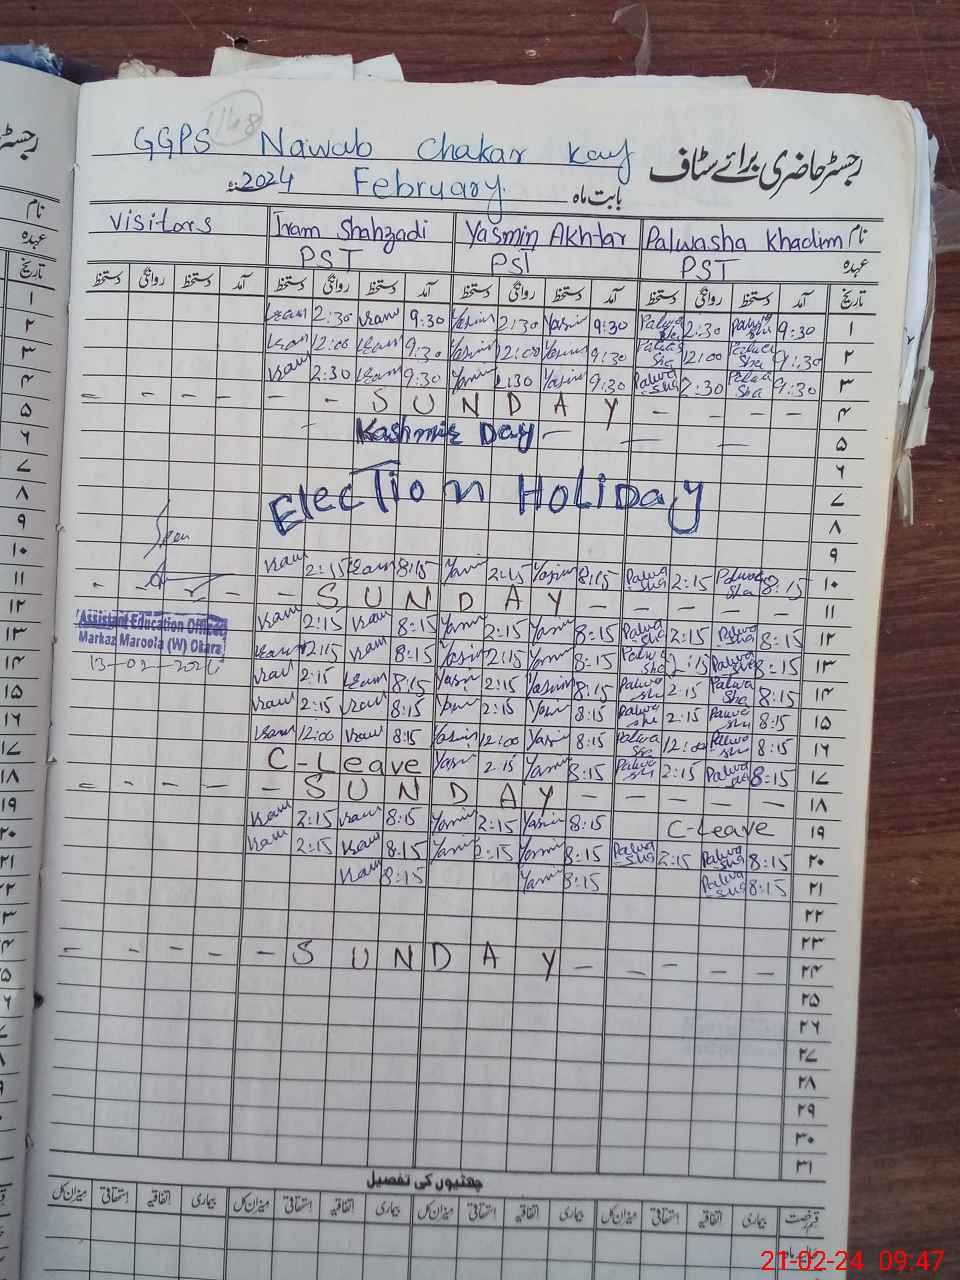 1/48
GGPS Nawab Chakar Kay
رجسٹر حاضری برائے سٹاف
بابت ماہ February 2024ء
نام Palwasha Khadim Yasmin Akhtar Iram Shahzadi Visitors
عہدہ PST PST PST
تاریخ آمد دستخط روانگی دستخط آمد دستخط روانگی دستخط آمد دستخط روانگی دستخط آمد دستخط روانگی دستخط
۱ 9:30 Palwasha 2:30 Palwasha 9:30 Yasmin 2:30 Yasmin 9:30 2:30
۲ 9:30 Palwasha 12:00 Palwasha 9:30 Yasmin 12:00 Yasmin 9:30 12:00
۳ 9:30 Palwasha 2:30 Palwasha 9:30 Yasmin 2:30 Yasmin 9:30 2:30
۴ - - - - - - SUNDAY - - - -
۵ - Kashmir Day - - -
۶
۷ Election Holiday
۸
۹
۱۰ 8:15 Palwasha 2:15 Palwasha 8:15 Yasmin 2:15 Yasmin 8:15 2:15
۱۱ - - - - - SUNDAY - - - - -
۱۲ 8:15 Palwasha 2:15 Palwasha 8:15 Yasmin 2:15 Yasmin 8:15 2:15
Assistant Education Officer
Markaz Maroola (W) Okara
13-02-2024
۱۳ 8:15 Palwasha 2:15 Palwasha 8:15 Yasmin 2:15 Yasmin 8:15 2:15
۱۴ 8:15 Palwasha 2:15 Palwasha 8:15 Yasmin 2:15 Yasmin 8:15 2:15
۱۵ 8:15 Palwasha 2:15 Palwasha 8:15 Yasmin 2:15 Yasmin 8:15 2:15
۱۶ 8:15 Palwasha 12:00 Palwasha 8:15 Yasmin 12:00 Yasmin 8:15 12:00
۱۷ 8:15 Palwasha 2:15 Palwasha 8:15 Yasmin 2:15 Yasmin C-Leave
۱۸ - - - - - SUNDAY - - - - -
۱۹ C-Leave 8:15 Yasmin 2:15 Yasmin 8:15 2:15
۲۰ 8:15 Palwasha 2:15 Palwasha 8:15 Yasmin 2:15 Yasmin 8:15 2:15
۲۱ 8:15 Palwasha 8:15 Yasmin 8:15
۲۲
۲۳
۲۴ - - - - - SUNDAY - - - - -
۲۵
۲۶
۲۷
۲۸
۲۹
۳۰
۳۱
چھٹیوں کی تفصیل
قسم رخصت بیماری اتفاقیہ استحقاقی میزان کل بیماری اتفاقیہ استحقاقی میزان کل بیماری اتفاقیہ استحقاقی میزان کل بیماری اتفاقیہ استحقاقی میزان کل
21-02-24 09:47